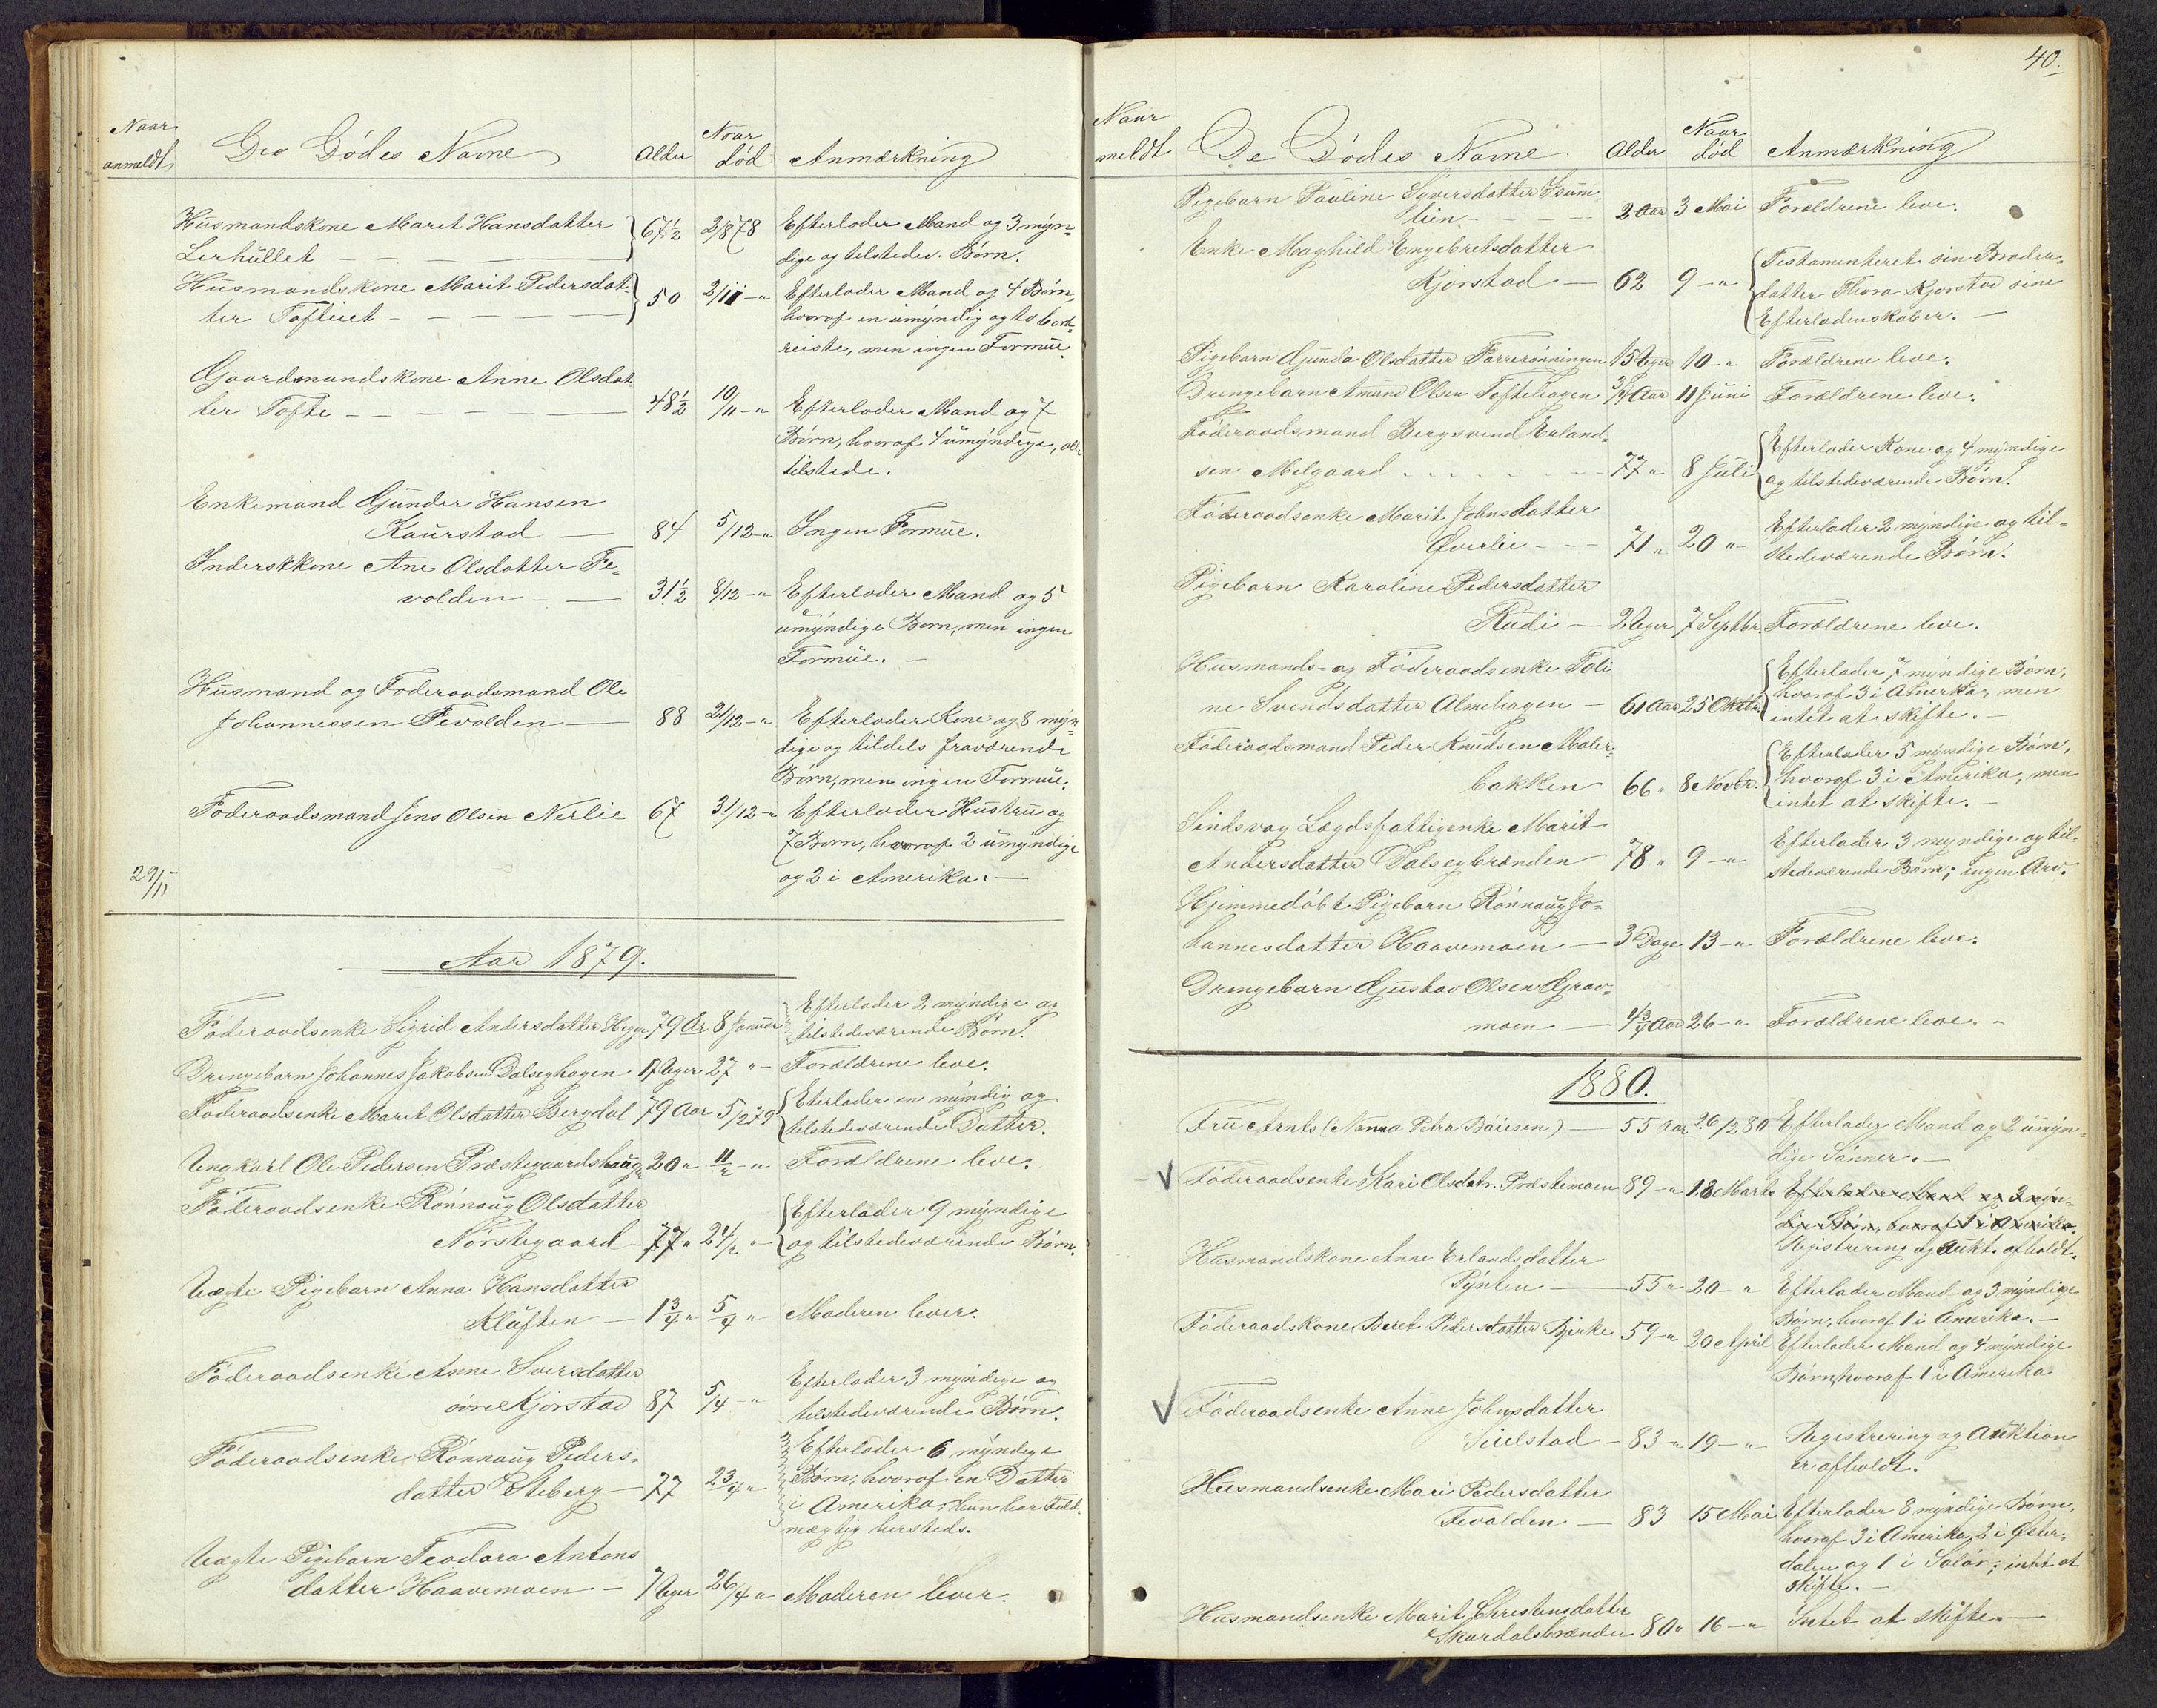 Naar
anmeldt
De Dødes Navne
Alder
Naar
død
Anmærkning
Husmandskone Marit Hansdatter
Lerhüllet - - - -
67½ 2/8 78 Efterlader Mand og 3 myn=
dige og tilstedev. Børn.
Husmandskone Marit Pedersdat=
ter Tofteiet - - - - -
50 2/11 -"- Efterlader Mand og 4 Børn,
hvoraf en umyndig og to bort=
reiste, men ingen Formüe.
Gaardmandskone Anne Olsdat=
ter Tofte - - - - 48½ 10/11 -"- Efterlader Mand og 7
Børn, hvoraf 4 ümyndige, alle
tilstede.
Enkemand Gunder Hansen
Kaurstad — 84 5/12 -"- Ingen Formüe.
Inderstkone Ane Olsdatter Fe=
volden - — 31½ 8/12 -"- Efterlader Mand og 5
umyndige Børn, men ingen
Formüe. —
Husmand og Føderaadsmand Ole
Johannessen Fevolden — 88 21/12 -"- Efterlader Kone og 8 myn=
dige og tildels fraværende
Børn, men ingen Formüe.
Føderaadsmand Jens Olsen Nerlie 67 31/12 -"- Efterlader Hustru og
7 Børn, hvoraf 2 umyndige
og 2 i Amerika. —
29/11
Aar 1879.
Føderaadsenke Sigrid Andersdatter Hygge 79 Ar 8 Januar Efterlader 2 myndige og
tilstedeværende Børn.
Drengebarn Johannes Jakobsen Dalseghagen 17 Uger 27 "- Forældrene leve.
Føderaadsenke Marit Olsdatter Bergdal 79 Aar 5/2 79 Eterlader en myndig og
tilstedeværende Datter.
Ungkarl Ole Pedersen Præstegaardshaugen 20 " 11/2 -"- Forældrene leve.
Føderaadsenke Rønnaug Olsdatter
Nørstegaard - 77 " 24/2 "- Efterlader 9 myndige
og tilstedeværende Børn.
Uægte Pigebarn Anna Hansdatter
Kluften — 1¾ " 5/4 " Moderen lever.
Føderaadsenke Anne Iversdatter
øvre Kjorstad 87 5/4 -"- Efterlader 3 myndige og
tilstedeværende Børn.
Føderaadsenke Rønnaug Peders=
datter Steberg — 77 23/4 " Efterlader 6 myndige
Børn, hvoraf en Datter
i Amerika, hun har Fuld=
mægtig hersteds.
Uægte Pigebarn Teodora Antons
datter Haavemoen — 7 Uger 26/4 " Moderen lever.
40.
Naar
meldt
De Dødes Navne
Alder
Naar
død
Anmærkning
Pigebarn Pauline Syversdatter Isum=
lien - - - - 2 Aar 3 Mai Forældrene leve.
Enke Maghild Engebretsdatter
Kjorstad — 62 9 -"- Testamenteret sin Broder=
datter Thora Kjorstad sine
Efterladenskaber. —
Pigebarn Gunda Olsdatter Forrerønningen 15 Uger 10 -"- Forældrene leve.
Drengebarn Amund Olsen Toftehagen ¾ Aar 11 Juni Forældrene leve.
Føderaadsmand Bergsvend Erland=
sen Melgaard - - - - 77 " 8 Juli Efterlader Kone og 4 myndige
og tilstedeværende Børn.
Føderaadsenke Marit Johnsdatter
Øverlie - - - 71 " 20 "- Efterlader 2 myndige og til=
stedeværende Børn.
Pigebarn Karoline Pedersdatter
Rudi — 2 Uger 7 Septbr. Forældrene leve.
Husmands- og Føderaadsenke Toli
ne Svendsdatter Almehagen - 61 Aar 25 Oktbr. Efterlader 7 myndige Børn,
hvoraf 3 i Amerika, men
intet at skifte. —
Føderaadsmand Peder Knudsen Maler=
bakken 66 " 8 Novbr. Efterlader 5 myndige Børn,
hvoraf 3 i Amerika, men
intet at skifte. —
Sindsvag Lægdsfattigenke Marit
Andersdatter Dalsegbrænden 78 " 9 -"- Efterlader 3 myndige og til=
stedeværende Børn; ingen Arv.
Hjemmedøbt Pigebarn Rønnaug Jo=
hannesdatter Haavemoen — 3 Dage 13 -"- Forældrene leve.
Drengebarn Gustav Olsen Grav=
moen — 4¾ Aar 26 -"- Forældrene leve. -
1880.
Fru Arnts (Nanna Petra Bøiesen) — 55 Aar 26/2 80 Efterlader Mand og 2 umyn=
dige Sønner. —
Føderaadsenke Kari Olsdatr. Præstemoen 89 -"- 18 Marts Efterlader Mand og 3 myn=
dige Børn, hvoraf 1 i Amerika
Registrering og Aukt. afholdt.
Husmandskone Anne Erlandsdatter
Pynten — 55 " 20 -"- Efterlader Mand og 3 myndige
Børn, hvoraf 1 i Amerika. —
Føderaadskone Beret Pedersdatter Bjerke 59 -"- 20 April Efterlader Mand og 4 myndige
Børn, hvoraf 1 i Amerika
Føderaadsenke Anne Johnsdatter
Sulstad - 83 -"- 19 -"- Registrering og Auktion
er afholdt.
Husmandsenke Mari Pedersdatter
Fevolden — 83 15 Mai Efterlader 8 myndige Børn,
hvoraf 3 i Amerika, 2 i Øster=
dalen og 1 i Solør; intet at
skifte. —
Husmandsenke Marit Christensdatter
Skurdalsbrænden 80 " 16 -"- Intet at skifte. —